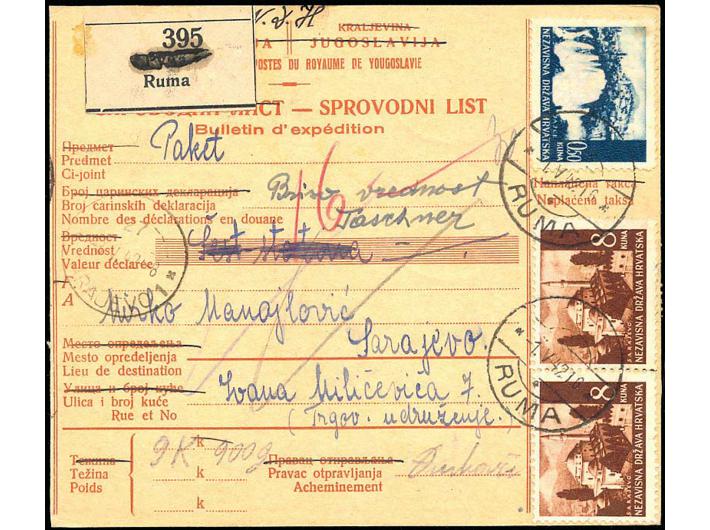 N. D. H.
395
Ruma
KRALJEVINA
JUGOSLAVIJA
POSTES DU ROYAUME DE YOUGOSLAVIE
ЛИСТ — SPROVODNI LIST
Bulletin d'expédition
Предмет
Predmet
Ci-joint
Paket
Број царинских декларација
Broj carinskih deklaracija
Nombre des déclarations en douane
16
Taschner
Вредност
Vrednost
Valeur déclarée
Šest stotina
A
Mirko Manajlović
Sarajevo.
Место опредељења
Mesto opredeljenja
Lieu de destination
Улица и број куће
Ulica i broj kuće
Rue et No
Ivana Milićevića 7.
(Trgov. udruženje.)
Тежина
Težina
Poids
k
k
k
9K 900g
Правац отправљања
Pravac otpravljanja
Acheminement
Наплаћена такса
Naplaćena taksa
NEZAVISNA DRŽAVA HRVATSKA
0.50
KUNA
RUMA
8
KUNA
NEZAVISNA DRŽAVA HRVATSKA
RUMA
8
KUNA
NEZAVISNA DRŽAVA HRVATSKA